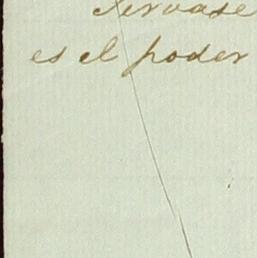 Servase
es el poder